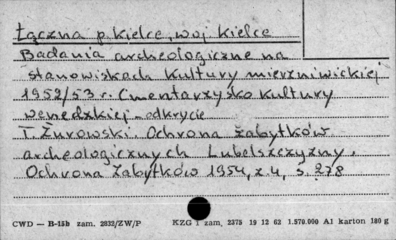 Łączna p. Kielce, woj. Kielce
Badania archeologiczne na
stanowiskach kultury mierzniwickiej
1952/53 r. Cmentarzysko kultury
wenedzkiej - odkrycie
T. Żurowski: Ochrona zabytków
archeologicznych Lubelszczyzny.
Ochrona Zabytków 1954, z. 4, s. 278
CWD — B-15b zam. 2832/ZW/P KZG 1 zam. 2375 19 12 62 1.570.000 A1 karton 180 g